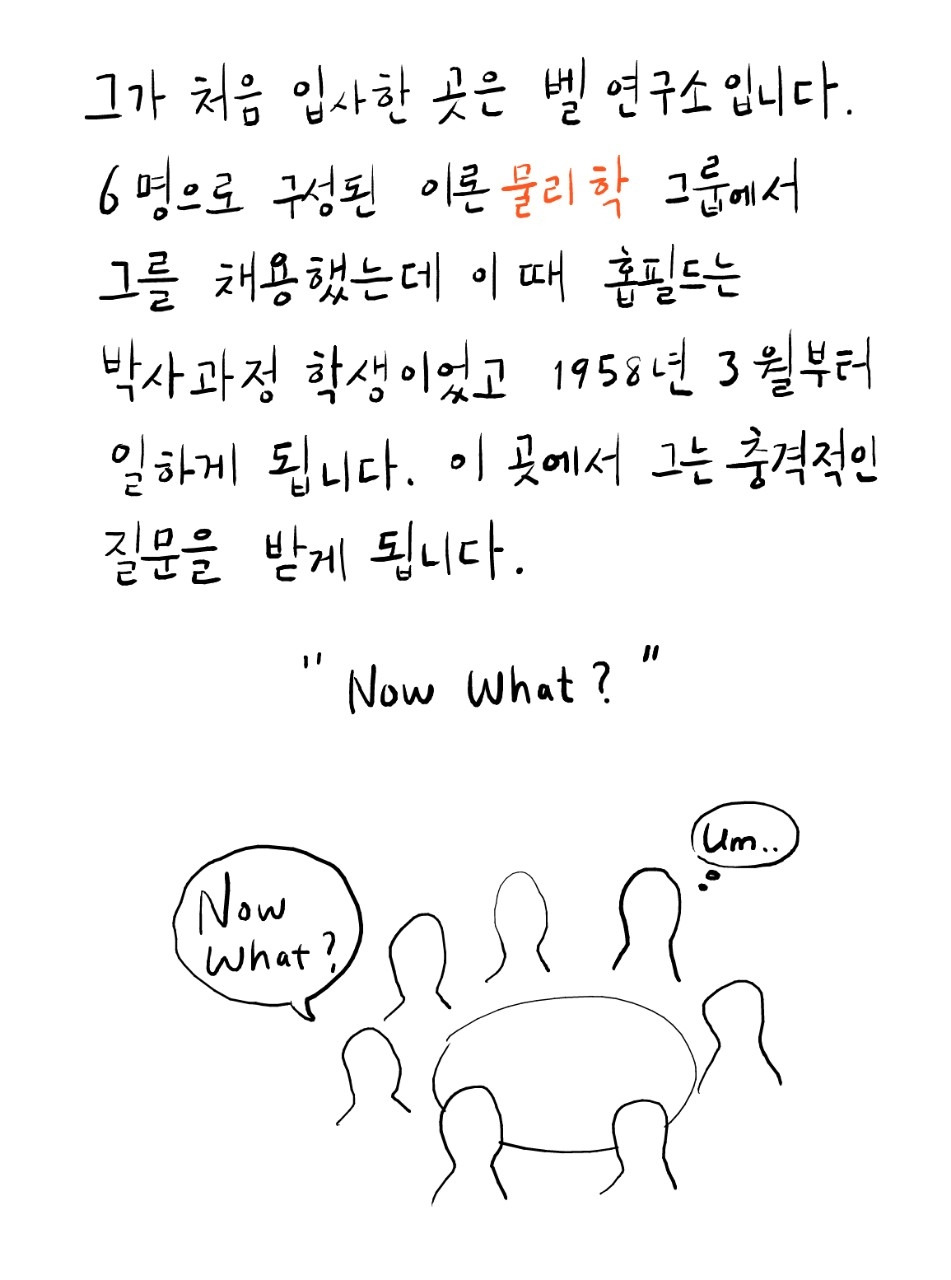 그가 처음 입사한 곳은 벨 연구소입니다.
6명으로 구성된 이론물리학 그룹에서
그를 채용했는데 이 때 홉필드는
박사과정 학생이었고 1958년 3월부터
일하게 됩니다. 이 곳에서 그는 충격적인
질문을 받게 됩니다.
"Now What?"
Um..
Now
What?